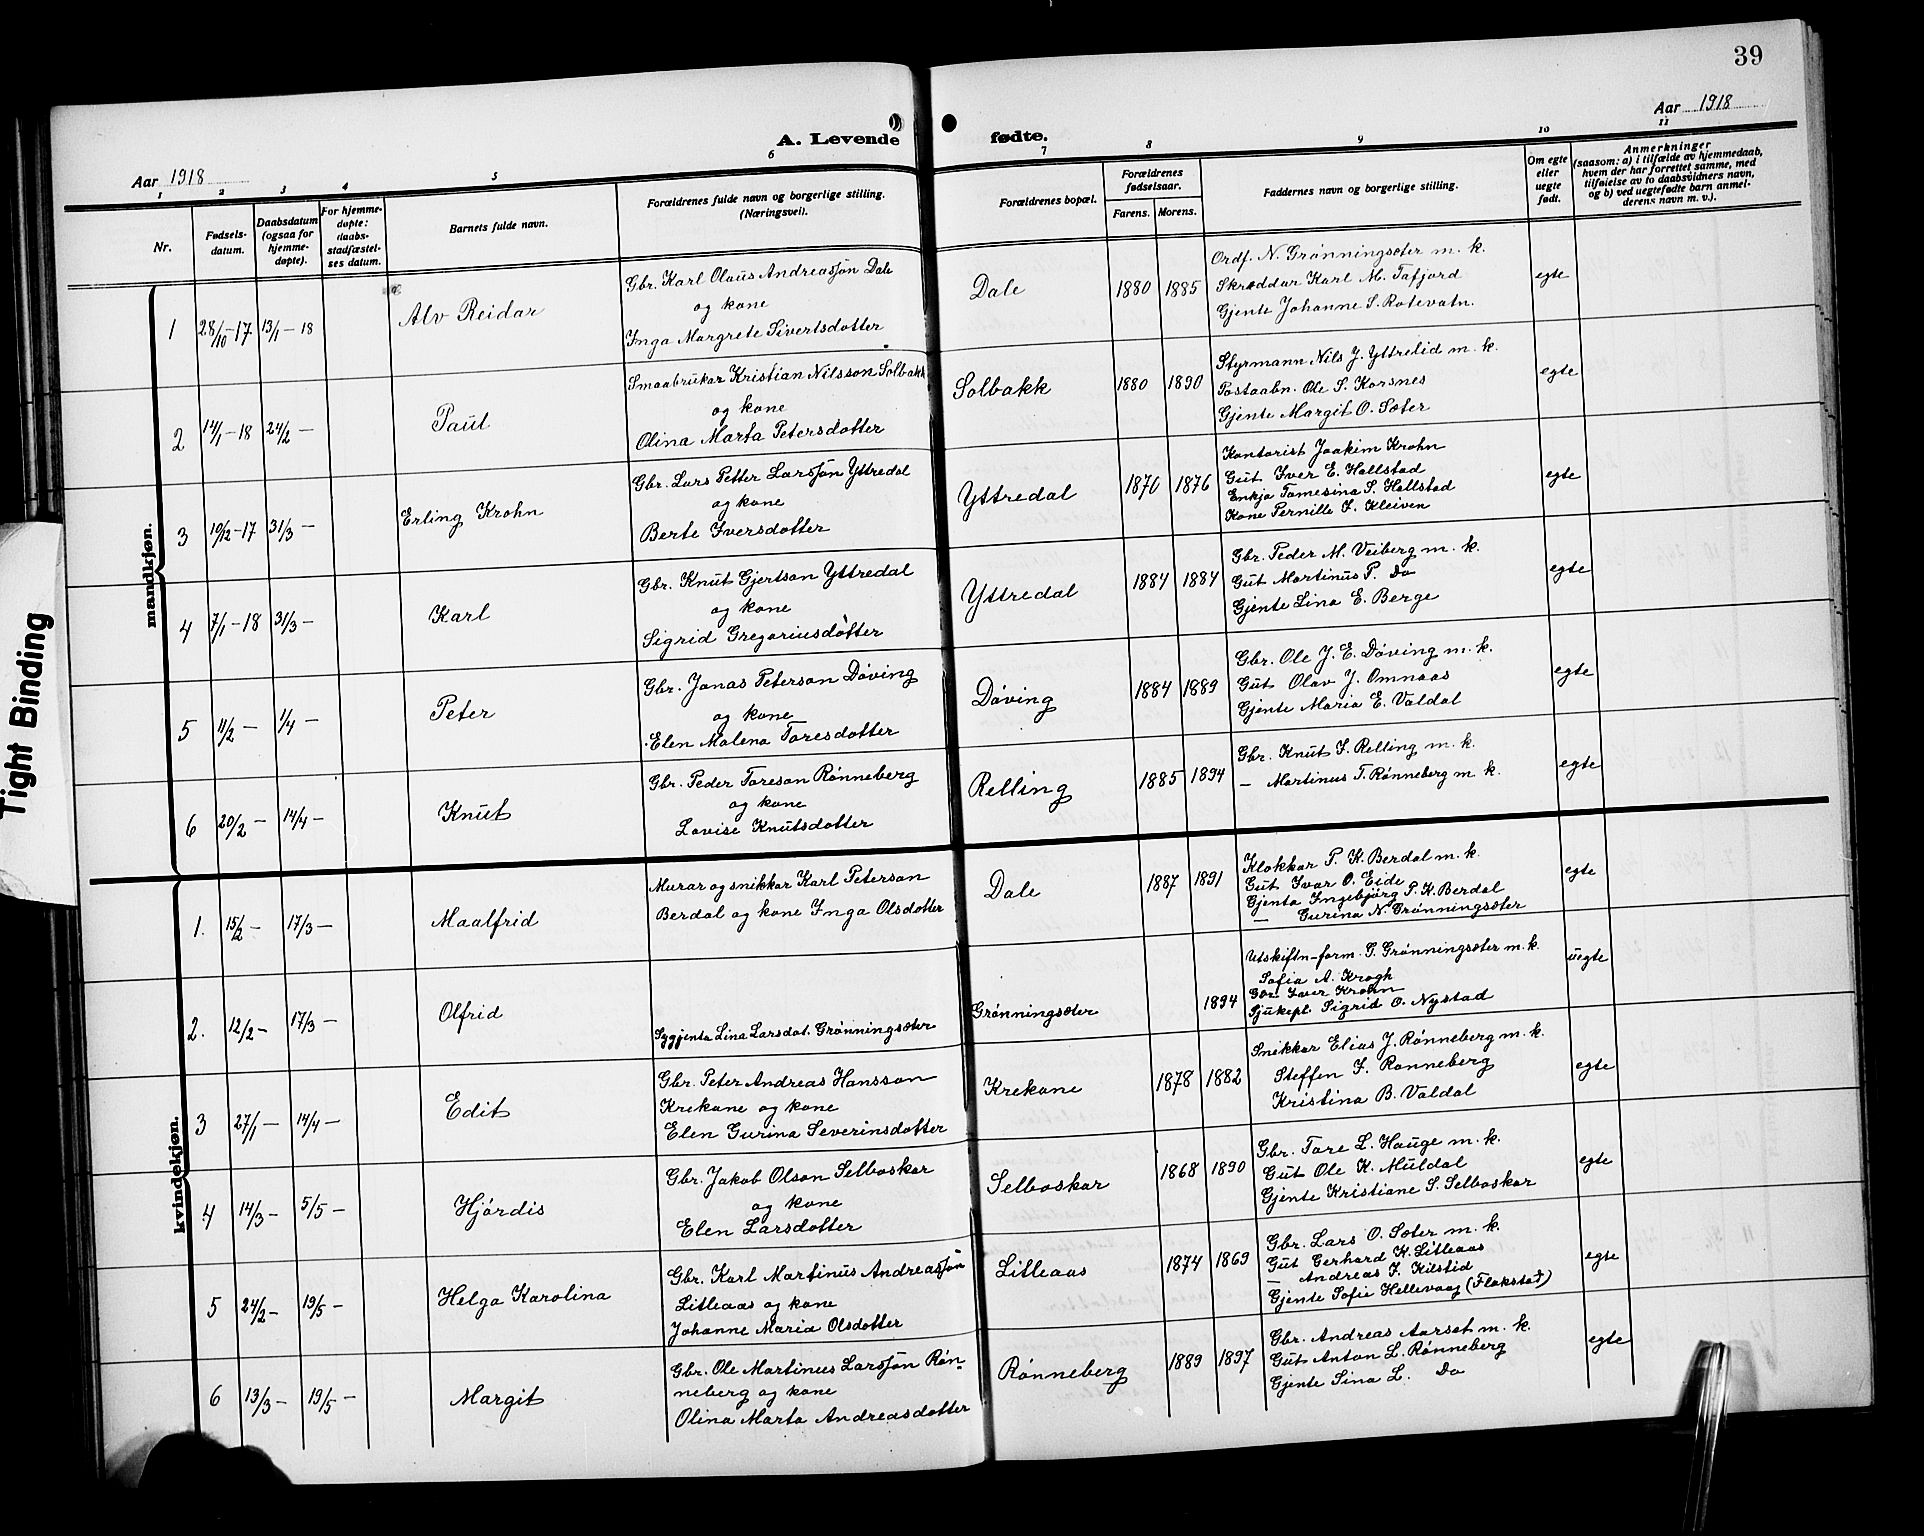 39
Aar 1918
Aar 1918
A. Levende
fødte.
1
2
3
4
5
6
7
8
9
10
11
Nr.
Fødsels-
datum.
Daabsdatum
(ogsaa for
hjemme-
døpte).
For hjemme-
døpte:
daabs-
stadfæstel-
ses datum.
Barnets fulde navn.
Forældrenes fulde navn og borgerlige stilling.
(Næringsvei).
Forældrenes bopæl.
Forældrenes
fødselsaar.
Farens. Morens.
Faddernes navn og borgerlige stilling.
Om egte
eller
uegte
født.
Anmerkninger
(saasom: a) i tilfælde av hjemmedaab,
hvem der har forrettet samme, med
tilføielse av to daabsvidners navn,
og b) ved uegtefødte barn anmel-
derens navn m. v.).
mandkjøn.
1 28/10-17 13/1-18 Alv Reidar
Gbr. Karl Olaus Andreasson Dale
og kone
Inga Margrete Sivertsdotter
Dale 1880 1885
Ordf. N. Grønningsæter m. k.
Skræddar Karl M. Tafjord
Gjente Johanne S. Rotevatn.
egte
2 14/1-18 24/2 — Paul
Smaabrukar Kristian Nilsson Solbakk
og kone
Olina Marta Petersdotter
Solbakk 1880 1890
Styrmann Nils J. Yttrelid m. k.
Postaabn. Ole S. Korsnes
Gjente Margit O. Sæter
egte
3 10/12-17 31/3 — Erling Krohn
Gbr. Lars Petter Larsson Yttredal
og kone
Berte Iversdotter
Yttredal 1870 1876
Kontorist Joakim Krohn
Gut Iver E. Hallstad
Enkja Tomesina S. Hallstad
Kone Pernille I. Kleiven
egte
4 7/1-18 31/3 — Karl
Gbr. Knut Gjertson Yttredal
og kone
Sigrid Gregoriusdotter
Yttredal 1884 1884
Gbr. Peder M. Veiberg m. k.
Gut Martinus P. Do
Gjente Lina E. Berge
egte
5 11/2 — 1/4 — Peter
Gbr. Jonas Peterson Døving
og kone
Elen Malena Toresdotter
Døving 1884 1889
Gbr. Ole J. E. Døving m. k.
Gut Olav J. Omnaas
Gjente Maria E. Valdal
egte
6 20/2 — 14/4 — Knut
Gbr. Peder Toreson Rønneberg
og kone
Lovise Knutsdotter
Relling 1885 1894
Gbr. Knut I. Relling m. k.
— Martinus T. Rønneberg m. k.
egte
kvindekjøn.
1. 15/2 — 17/3 — Maalfrid
Murar og snikkar Karl Peterson
Berdal og kone Inga Olsdotter
Dale 1887 1891
Klokkar P. K. Berdal m. k.
Gut Ivar O. Eide
Gjenta Ingebjørg P. K. Berdal
— Gurina N. Grønningsæter
egte
2. 12/2 — 17/3 — Olfrid
Sygjenta Lina Larsdot. Grønningsæter
Grønningsæter 1894
Utskiftn-form. G. Grønningsæter m. k.
Sofia A. Krogh
Gbr. Iver Krohn
Sjukepl. Sigrid O. Nystad
uegte
3 27/1 — 14/4 — Edit
Gbr. Peter Andreas Hansson
Krekane og kone
Elen Gurina Severinsdotter
Krekane 1878 1882
Snikkar Elias J. Rønneberg m. k.
Steffen I. Rønneberg
Kristina B. Valdal
egte
4 14/3 — 5/5 — Hjørdis
Gbr. Jakob Olson Selboskar
og kone
Elen Larsdotter
Selboskar 1868 1890
Gbr. Tore L. Hauge m. k.
Gut Ole K. Muldal
Gjente Kristiane S. Selboskar
egte
5 24/2 — 19/5 — Helga Karolina
Gbr. Karl Martinus Andreasson
Litleaas og kone
Johanne Maria Olsdotter
Litleaas 1874 1869
Gbr. Lars O. Sæter m. k.
Gut Gerhard K. Litleaas
— Andreas I. Kilstid
Gjente Sofie Hellevaag (Flakstad)
egte
6 13/3 — 19/5 — Margit
Gbr. Ole Martinus Larsson Røn-
neberg og kone
Olina Marta Andreasdotter
Rønneberg 1889 1897
Gbr. Andreas Aarset m. k.
Gut Anton L. Rønneberg
Gjente Sina L. Do
egte
Tight Binding